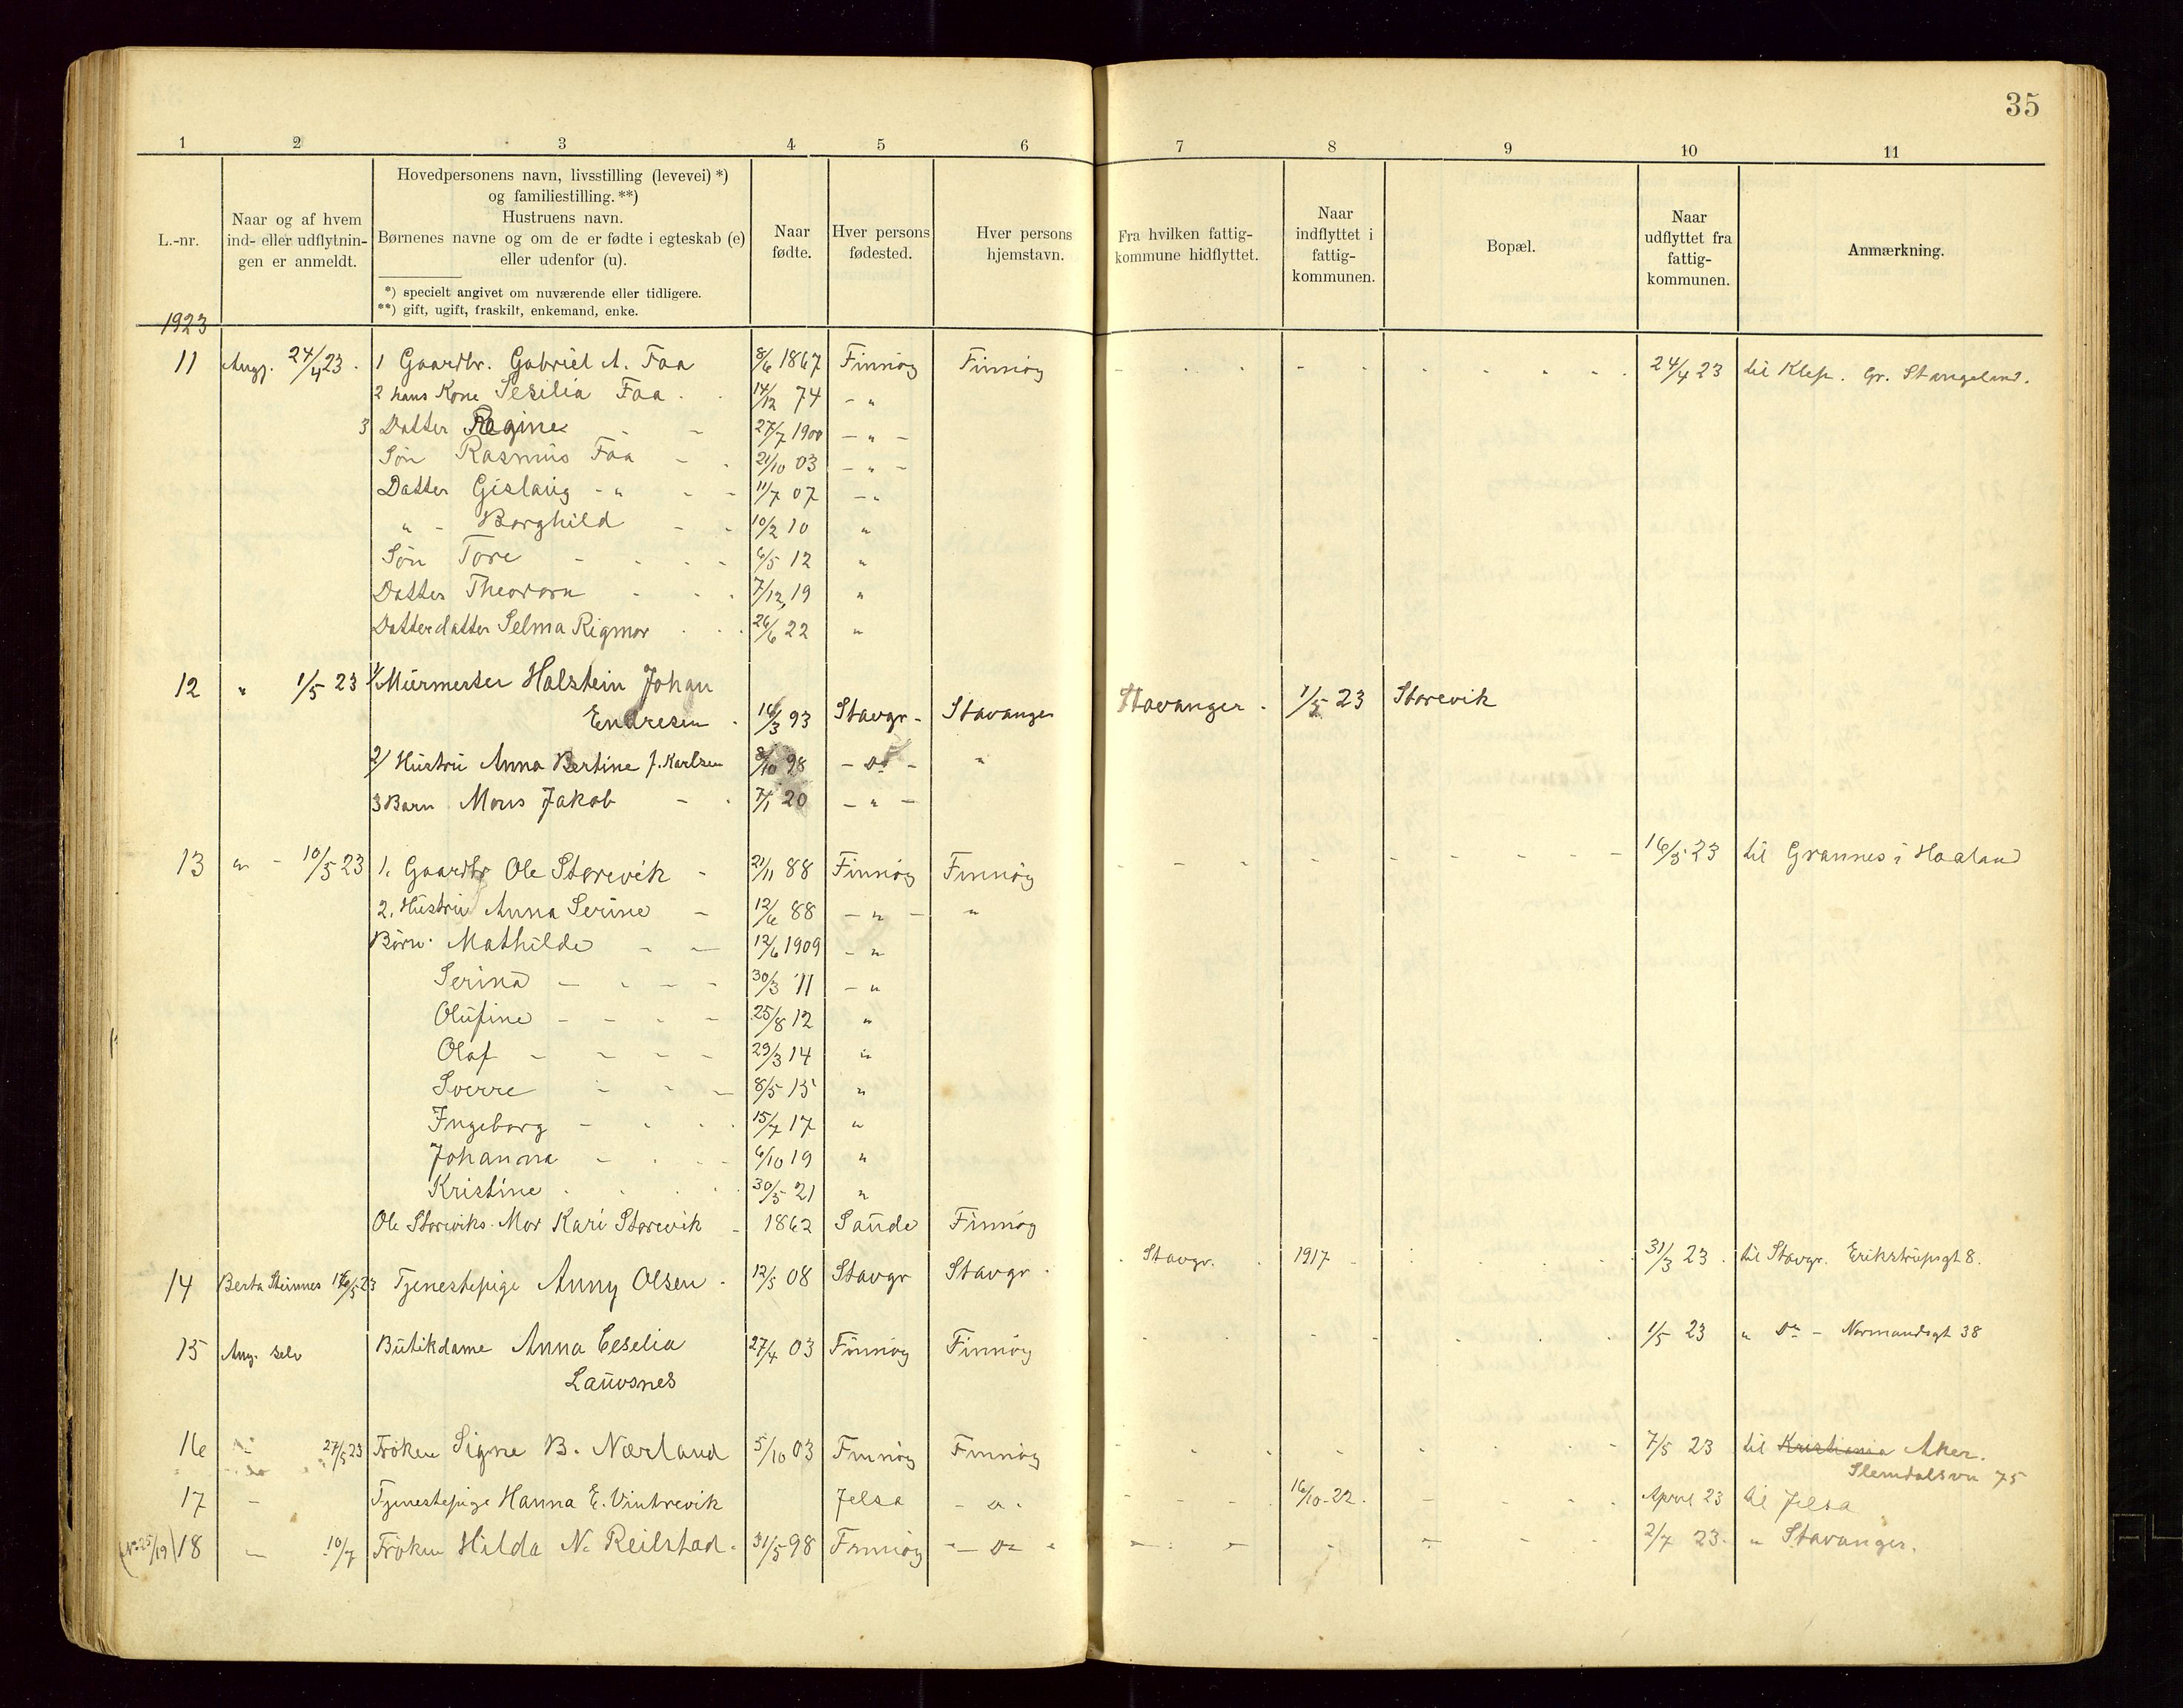 35
1 2 3 4 5 6 7 8 9 10 11
L.-nr.
Naar og af hvem
ind- eller udflytnin-
gen er anmeldt.
Hovedpersonens navn, livsstilling (levevei) *)
og familiestilling. **)
Hustruens navn.
Børnenes navne og om de er fødte i egteskab (e)
eller udenfor (u).
*) specielt angivet om nuværende eller tidligere.
**) gift, ugift, fraskilt, enkemand, enke.
Naar
fødte.
Hver persons
fødested.
Hver persons
hjemstavn.
Fra hvilken fattig-
kommune hidflyttet.
Naar
indflyttet i
fattig-
kommunen.
Bopæl.
Naar
udflyttet fra
fattig-
kommunen.
Anmærkning.
1923
11 24/4 23 . 1 Gaardbr. Gabriel A. Faa 8/6 1867 Finnøy Finnøy 24/4 23 til Klep. Gr. Stangeland.
2 hans Kone Sesilia Faa 14/12 74 - " 
3 Datter Regine 27/7 1900 - " -
Søn Rasmus Faa 21/10 03 - " -
Datter Gislaug - " 11/7 07 - "
" - Borghild 10/2 10 "
Søn Tore 6/5 12 "
Datter Theodora 7/12 19 "
Datterdatter Selma Rigmor 26/6 22 "
12 " 1/5 23 1/ Murmester Halstein Johan
Endresen 16/3 93 Stavgr. Stavanger Stavanger 1/5 23 Storevik
2/ Hustru Anna Bertine f. Karlsen 8/10 98 - Do - "
3 Barn Mons Jakob 7/1 20 - " -
13 " - 10/5 23 1. Gaardbr Ole Storevik 21/11 88 Finnøy Finnøy 16/5 23 til Grannes i Haaland
2. Hustru Anna Serine 12/6 88 - " - "
Børn. Mathilde 12/6 1909 - "
Serina 30/3 11 - "
Olufine 25/8 12 "
Olaf 29/3 14 "
Sverre 8/5 15 "
Ingeborg 15/7 17 "
Johanna 6/10 19 "
Kristine 30/5 21 "
Ole Storeviks Mor Kari Storevik 1862 Saude Finnøy
14 Berta Steinnes Tjenestepige Anny Olsen 12/5 08 Stavgr Stavgr Stavgr. 1917 31/3 23 til Stavgr. Erikstrupsgt 8.
15 Ang. selv Butikdame Anna Ceselia 27/4 03 Finnøy Finnøy 1/5 23 " Do - Normandsgt 38
Lauvsnes
16 " 27/5 23 Frøken Signe B. Nærland 5/10 03 Finnøy Finnøy 7/5 23 til Kristiania Aker.
Slemdalsvn 75
17 - Tjenestepige Hanna E. Vintrevik Jelsa - " - 16/10-22. April 23 til Jelsa
(No 25/19) 18 - 10/7 Frøken Hilda N. Reilstad 31/5 98 Finnøy - Do 2/7 23. " Stavanger.